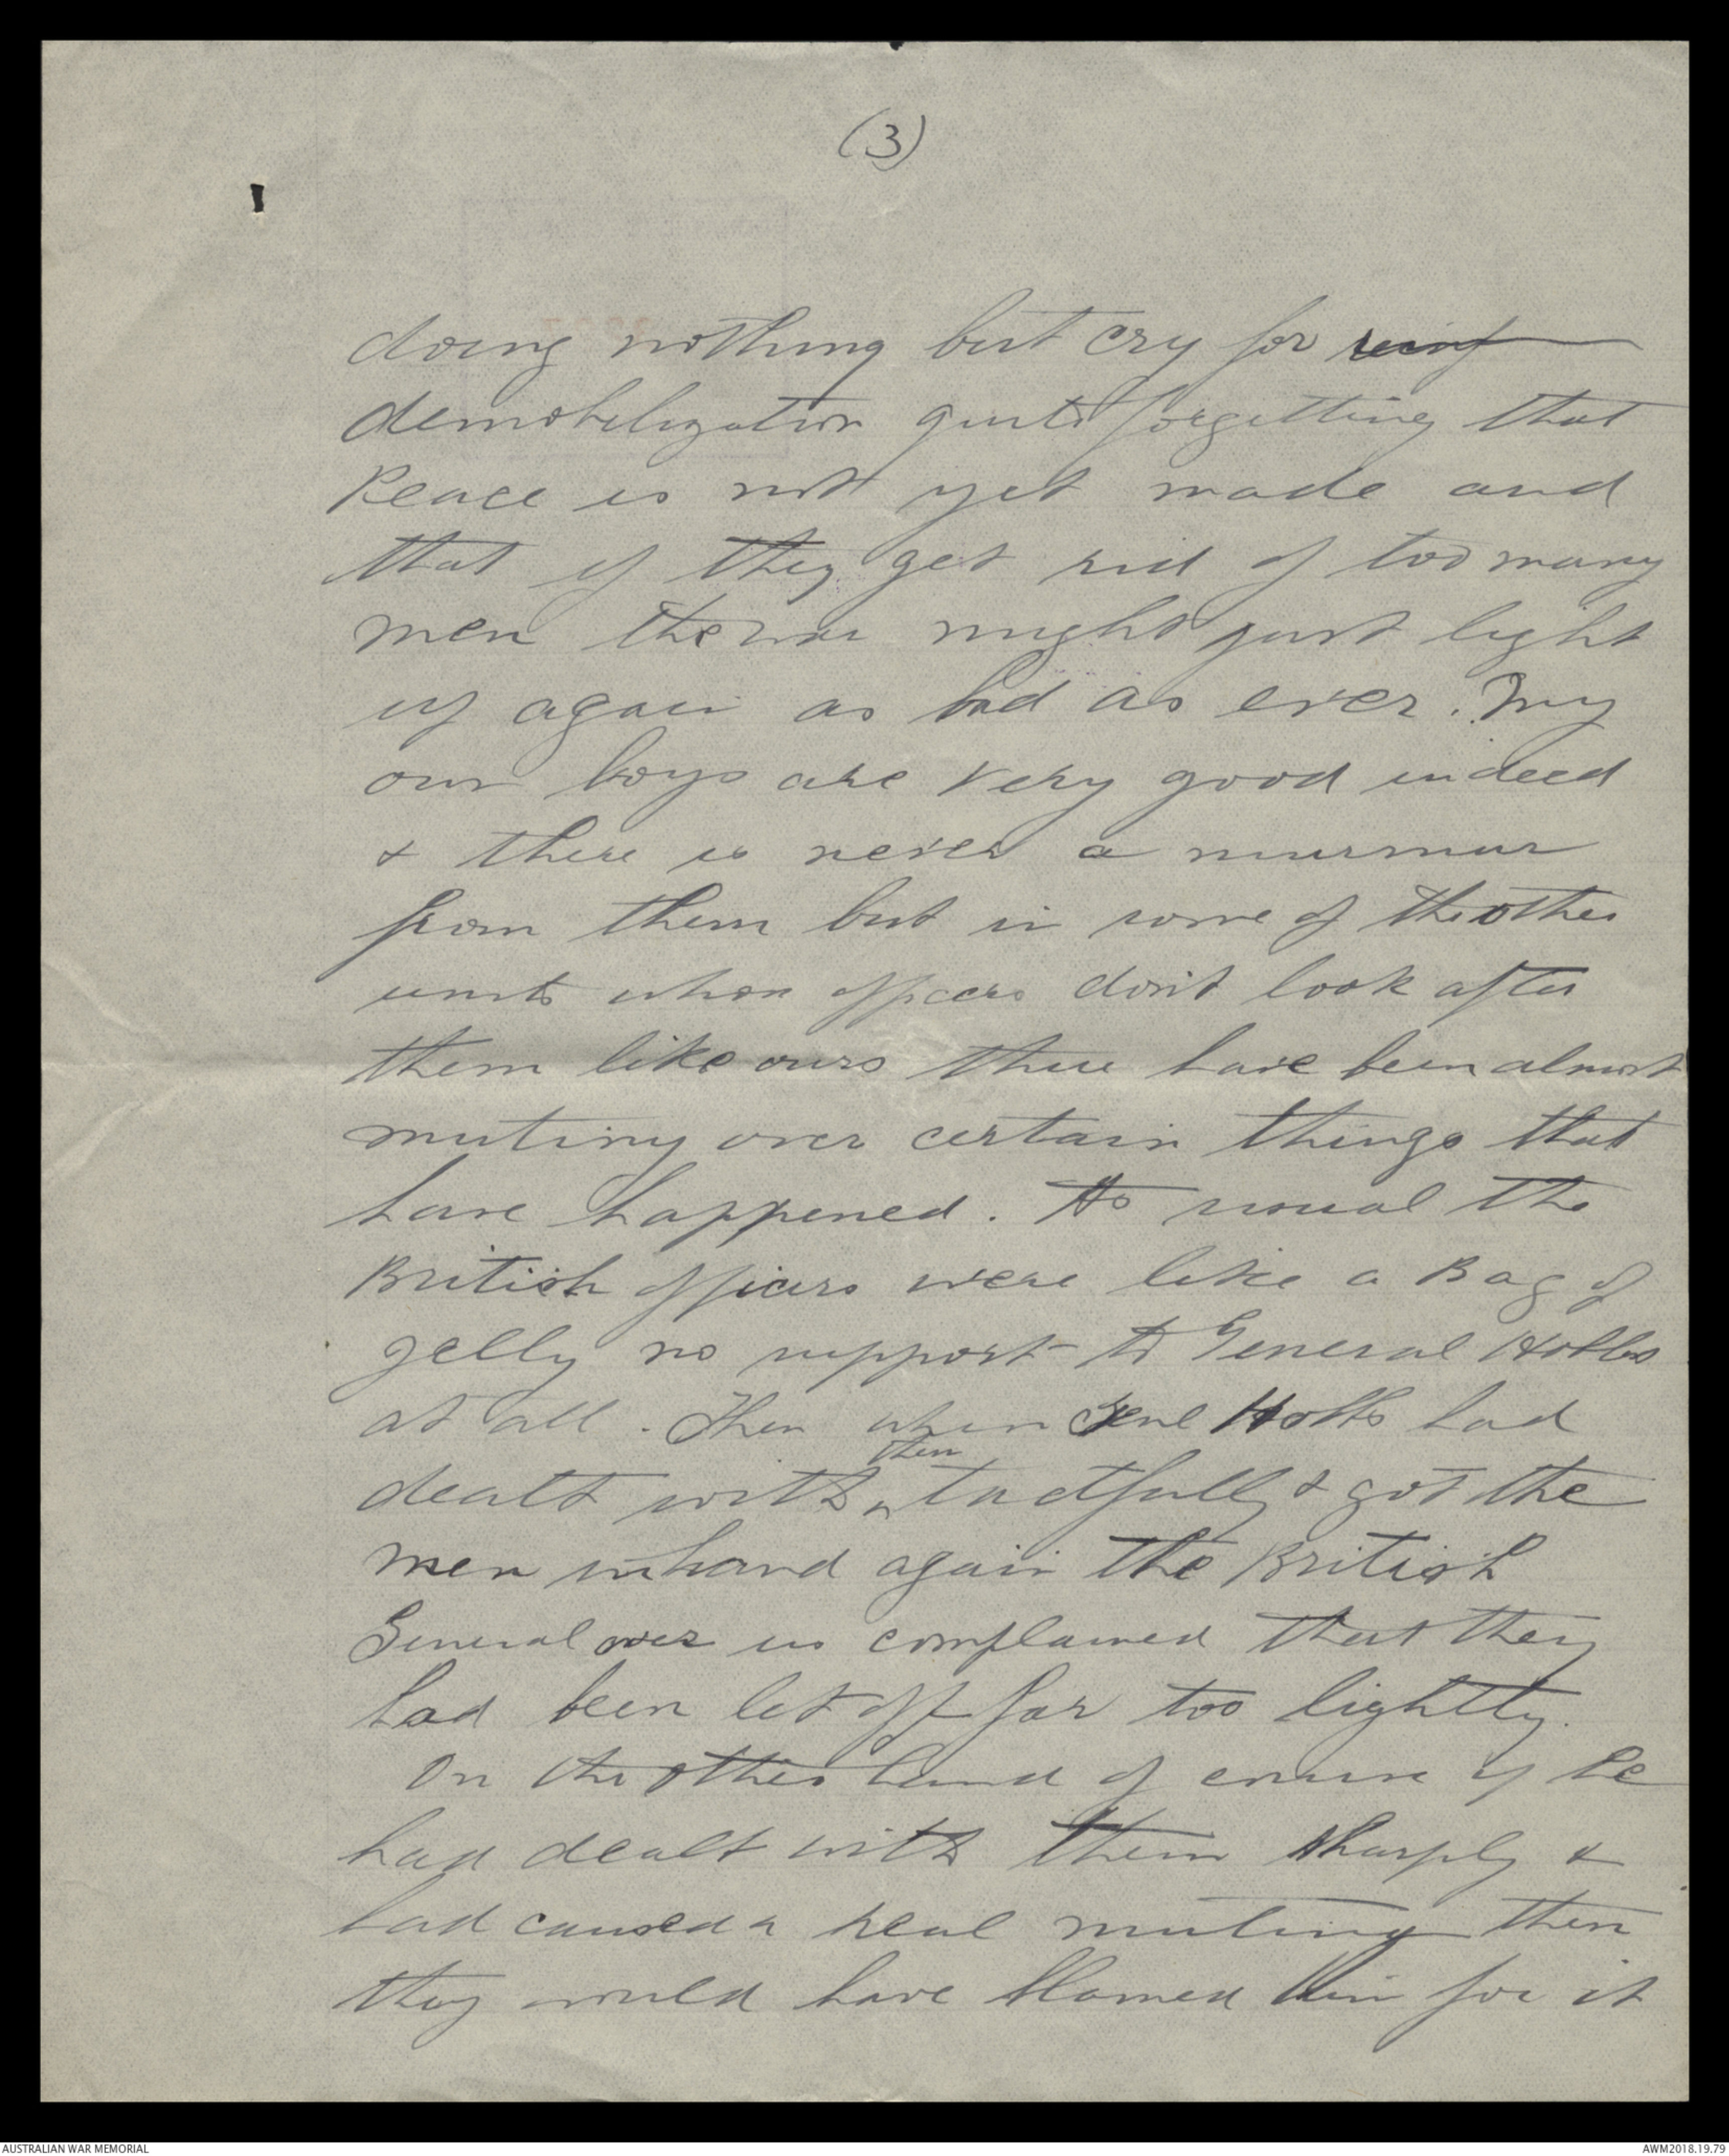 (3)
doing nothing but cry for reinf
demobilization quite forgetting that
Peace is not yet made and
that if they get rid of too many
men the war might just light
up again as bad as ever. My
own boys are very good indeed
& there is never a murmur
from them but in some of the other
units whose officers don't look after
them like ours there have been almost
mutiny over certain things that
have happened. As usual the
British officers were like a Bag of
jelly no support to General Hobbs
at all. Then when Genl Hobbs had
dealt with them tactfully & got the
men in hand again the British
General over us complained that they
had been let off far too lightly.
On the other hand of course if he
had dealt with them sharply &
had caused a real mutiny then
they would have blamed him for it
AUSTRALIAN WAR MEMORIAL
AWM2018.19.79